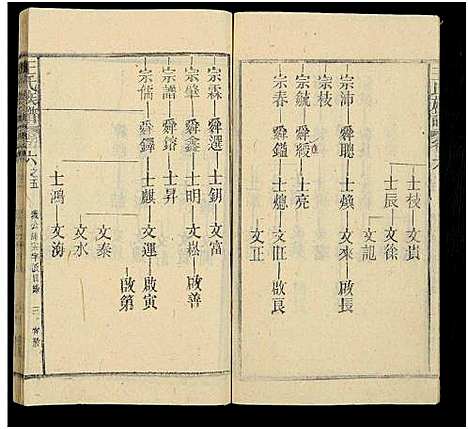 士枝 文貴
士辰 文徐
文龍
宗沛 舜聰 士煥 文來 啟長
宗枝
宗毓 舜綬 士亮
宗春 舜鎰 士 文旺 啟良
文正
宗霖 舜選 士鈅 文富
宗 舜鑫 士明 文崧 啟善
宗譜 舜鎔 士昇
宗儒 舜鐸 士麒 文運 啟寅
啟第
文泰
文水
士鴻 文海
王氏族譜
卷六之五
三
王氏族譜 卷六